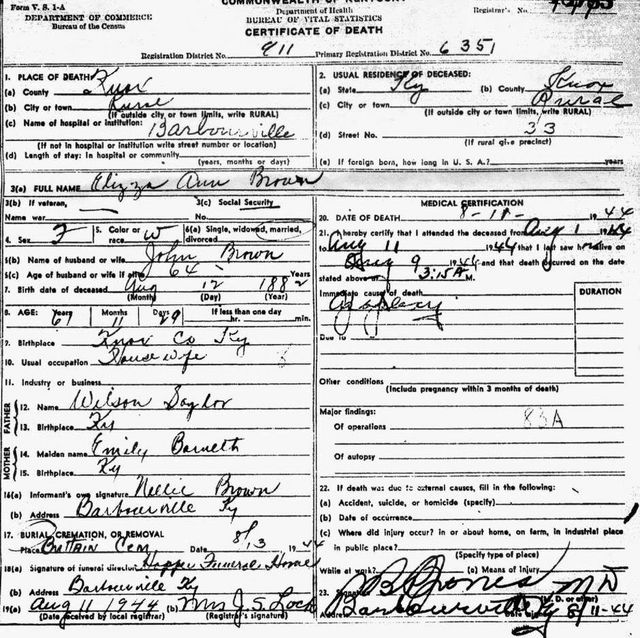 Form V. S. 1-A
DEPARTMENT OF COMMERCE
Bureau of the Census
COMMONWEALTH OF KENTUCKY
Department of Health
BUREAU OF VITAL STATISTICS
CERTIFICATE OF DEATH
Registrar's No.
Registration District No. 911 Primary Registration District No. 6351
1. PLACE OF DEATH
(a) County Knox
(b) City or town Rural
(If outside city or town limits, write RURAL)
(c) Name of hospital or institution: Barbourville
(If not in hospital or institution write street number or location)
(d) Length of stay: In hospital or community (years, months or days)
2. USUAL RESIDENCE OF DECEASED:
(a) State Ky (b) County Knox
(c) City or town Rural
(If outside city or town limits, write RURAL)
(d) Street No. 33
(If rural give precinct)
(e) If foreign born, how long in U. S. A.? years
3(a) FULL NAME Elizza Ann Brown
3(b) If veteran, Name war 3(c) Social Security No.
4. Sex F 5. Color or race W 6(a) Single, widowed, married, divorced
6(b) Name of husband or wife John Brown
6(c) Age of husband or wife if alive 64 Years
7. Birth date of deceased Aug 12 1882
(Month) (Day) (Year)
8. AGE: Years 61 Months 11 Days 29 If less than one day hr. min.
9. Birthplace Knox Co Ky
10. Usual occupation House wife
11. Industry or business
FATHER
12. Name Wilson Saylor
13. Birthplace Ky
MOTHER
14. Maiden name Emily Barneth
15. Birthplace Ky
16(a) Informant's own signature Nellie Brown
(b) Address Barbourville Ky
17. BURIAL, CREMATION, OR REMOVAL
Place Brittain Cem Date 8/13 1944
18(a) Signature of funeral director Hopper Funeral Home
(b) Address Barbourville Ky
19(a) Aug 11 1944 (b) Mrs J. S. Lock
(Date received by local registrar) (Registrar's signature)
MEDICAL CERTIFICATION
20. DATE OF DEATH 8-11- 1944
21. I hereby certify that I attended the deceased from Aug 1 1944
to Aug 11 1944 that I last saw her alive on
Aug 9 1944 and that death occurred on the date
stated above at 3:15 A M.
DURATION
Immediate cause of death
Apoplexy
Due to
Other conditions
(Include pregnancy within 3 months of death)
Major findings:
Of operations 83A
Of autopsy
22. If death was due to external causes, fill in the following:
(a) Accident, suicide, or homicide (specify)
(b) Date of occurrence
(c) Where did injury occur? in or about home, on farm, in industrial place
in public place?
(Specify type of place)
While at work? (e) Means of injury
23. Signature Jones MD
(M. D. or other)
Address Barbourville Ky Date signed 8/11-44